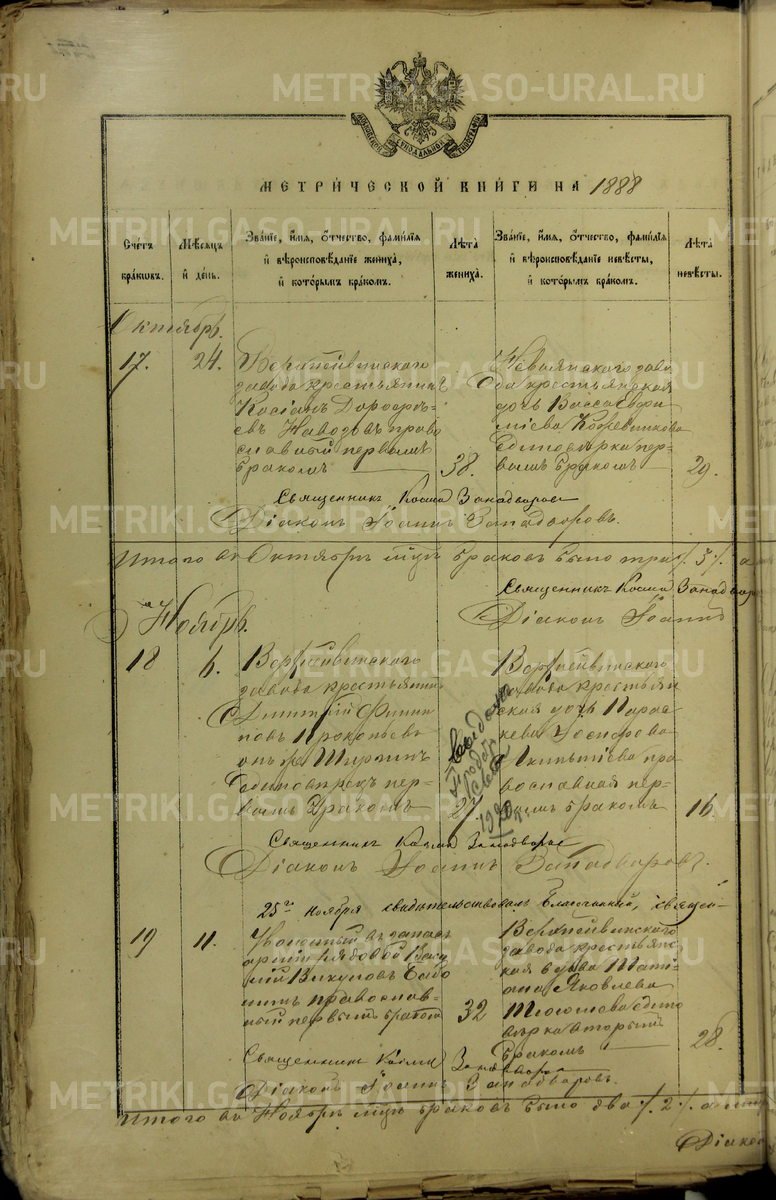 МОСКОВСКОЙ СѴНОДАЛЬНОЙ ТИПОГРАФІИ
МЕТРИ́ЧЕСКОЙ КНИ́ГИ НА 1888
Сче́тъ бра́ковъ.
Мѣ́сѧцъ и҆ де́нь.
Зва́нїе, и҆́мѧ, ѻ҆́тчество, фамѝлїѧ и҆ вѣроисповѣ́данїе жениха̀, и҆ кото́рымъ бра́комъ.
Лѣ́та жениха̀.
Зва́нїе, и҆́мѧ, ѻ҆́тчество, фамѝлїѧ и҆ вѣроисповѣ́данїе невѣ́сты, и҆ кото́рымъ бра́комъ.
Лѣ́та невѣ́сты.
Октябрь.
17.
24.
Верхнейвинского
завода крестьянинъ
Косіанъ Дорофѣ-
евъ Наводовъ право
славный первымъ
бракомъ
38.
Невьянского заво
да крестьянская
дочь Васса Евфи
міева Кожевникова
единовѣрка пер-
вымъ бракомъ
29.
Священникъ Косма Западворовъ
Діаконъ Іоаннъ Западворовъ.
Итого въ Октябрѣ мцѣ браковъ было три /. 3 /. а
Священникъ Косма Западвор
Діаконъ Іоаннъ
Ноябрь.
18
6.
Верхнейвинского
завода крестьянинъ
Димитрій Филип
повъ Прокопьевъ
онъ же Ширяинъ
единовѣрецъ пер-
вымъ бракомъ
27.
Верхнейвинского
завода крестьян
ская дочь Парас
кева Іосифова
Акинтіева пра
вославная пер-
вымъ бракомъ
16
Священникъ Косма Западворовъ
Діаконъ Іоаннъ Западворовъ.
25го Ноября свидѣтельствовалъ Благочинный, священ
19
11.
Уволенный въ запасъ
арміи рядовой Васи
лій Викуловъ Бабо
нинъ православ-
ный первымъ бракомъ
32
Верхнейвинского
завода крестьянс
кая вдова Тать-
яна Яковлева
Тюсюгова едино
вѣрка вторымъ
бракомъ
28.
Священникъ Косма Западворовъ
Діаконъ Іоаннъ Западворовъ.
Итого въ Ноябрѣ мцѣ браковъ было два /. 2 /. а
Діакон
METRIKI.GASO-URAL.RU